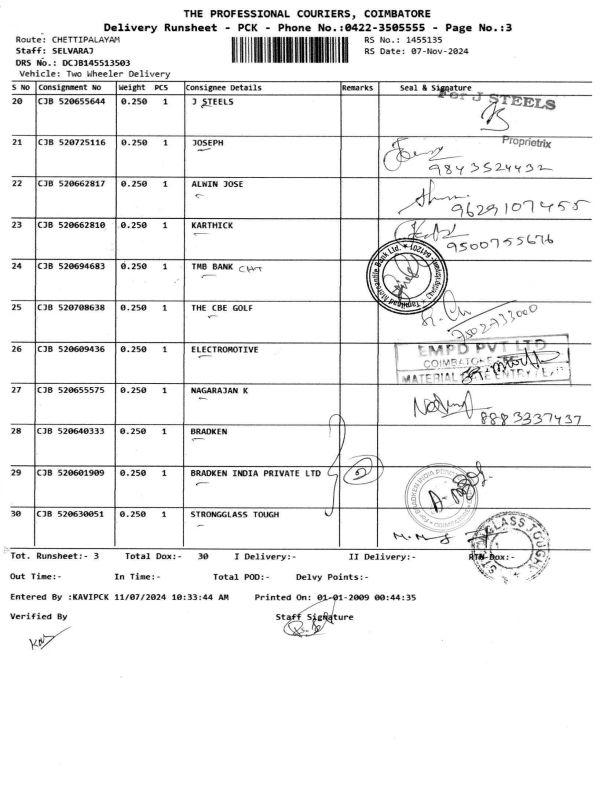 THE PROFESSIONAL COURIERS, COIMBATORE
Delivery Runsheet - PCK - Phone No.:0422-3505555 - Page No.:3
Route: CHETTIPALAYAM RS No.: 1455135
Staff: SELVARAJ RS Date: 07-Nov-2024
DRS No.: DCJB145513503
Vehicle: Two Wheeler Delivery
S No Consignment No Weight PCS Consignee Details Remarks Seal & Signature
20 CJB 520655644 0.250 1 J STEELS For J STEELS
Proprietrix
21 CJB 520725116 0.250 1 JOSEPH
9843524432
22 CJB 520662817 0.250 1 ALWIN JOSE
9629107455
23 CJB 520662810 0.250 1 KARTHICK
9500755676
24 CJB 520694683 0.250 1 TMB BANK CHT
Tamilnad Mercantile Bank Ltd.
25 CJB 520708638 0.250 1 THE CBE GOLF
26 CJB 520609436 0.250 1 ELECTROMOTIVE EMPD PVT LTD
COIMBATORE
MATERIAL ENTRY
27 CJB 520655575 0.250 1 NAGARAJAN K
8883337437
28 CJB 520640333 0.250 1 BRADKEN
29 CJB 520601909 0.250 1 BRADKEN INDIA PRIVATE LTD 2
For BRADKEN INDIA
30 CJB 520630051 0.250 1 STRONGGLASS TOUGH
Tot. Runsheet:- 3 Total Dox:- 30 I Delivery:- II Delivery:- RTN Dox:-
Out Time:- In Time:- Total POD:- Delvy Points:-
Entered By :KAVIPCK 11/07/2024 10:33:44 AM Printed On: 01-01-2009 00:44:35
Verified By Staff Signature